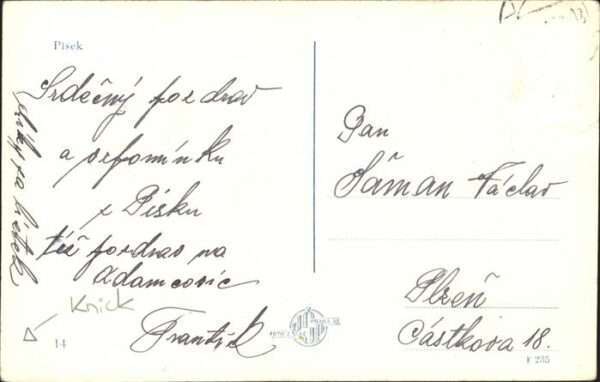 Písek
Srdečný pozdrav
a vzpomínku
z Písku
též pozdrav na
Adamcovic
František
Díky za lístek
Knick
14
Pan
Šáman Václav
Plzeň
Částkova 18.
F 235